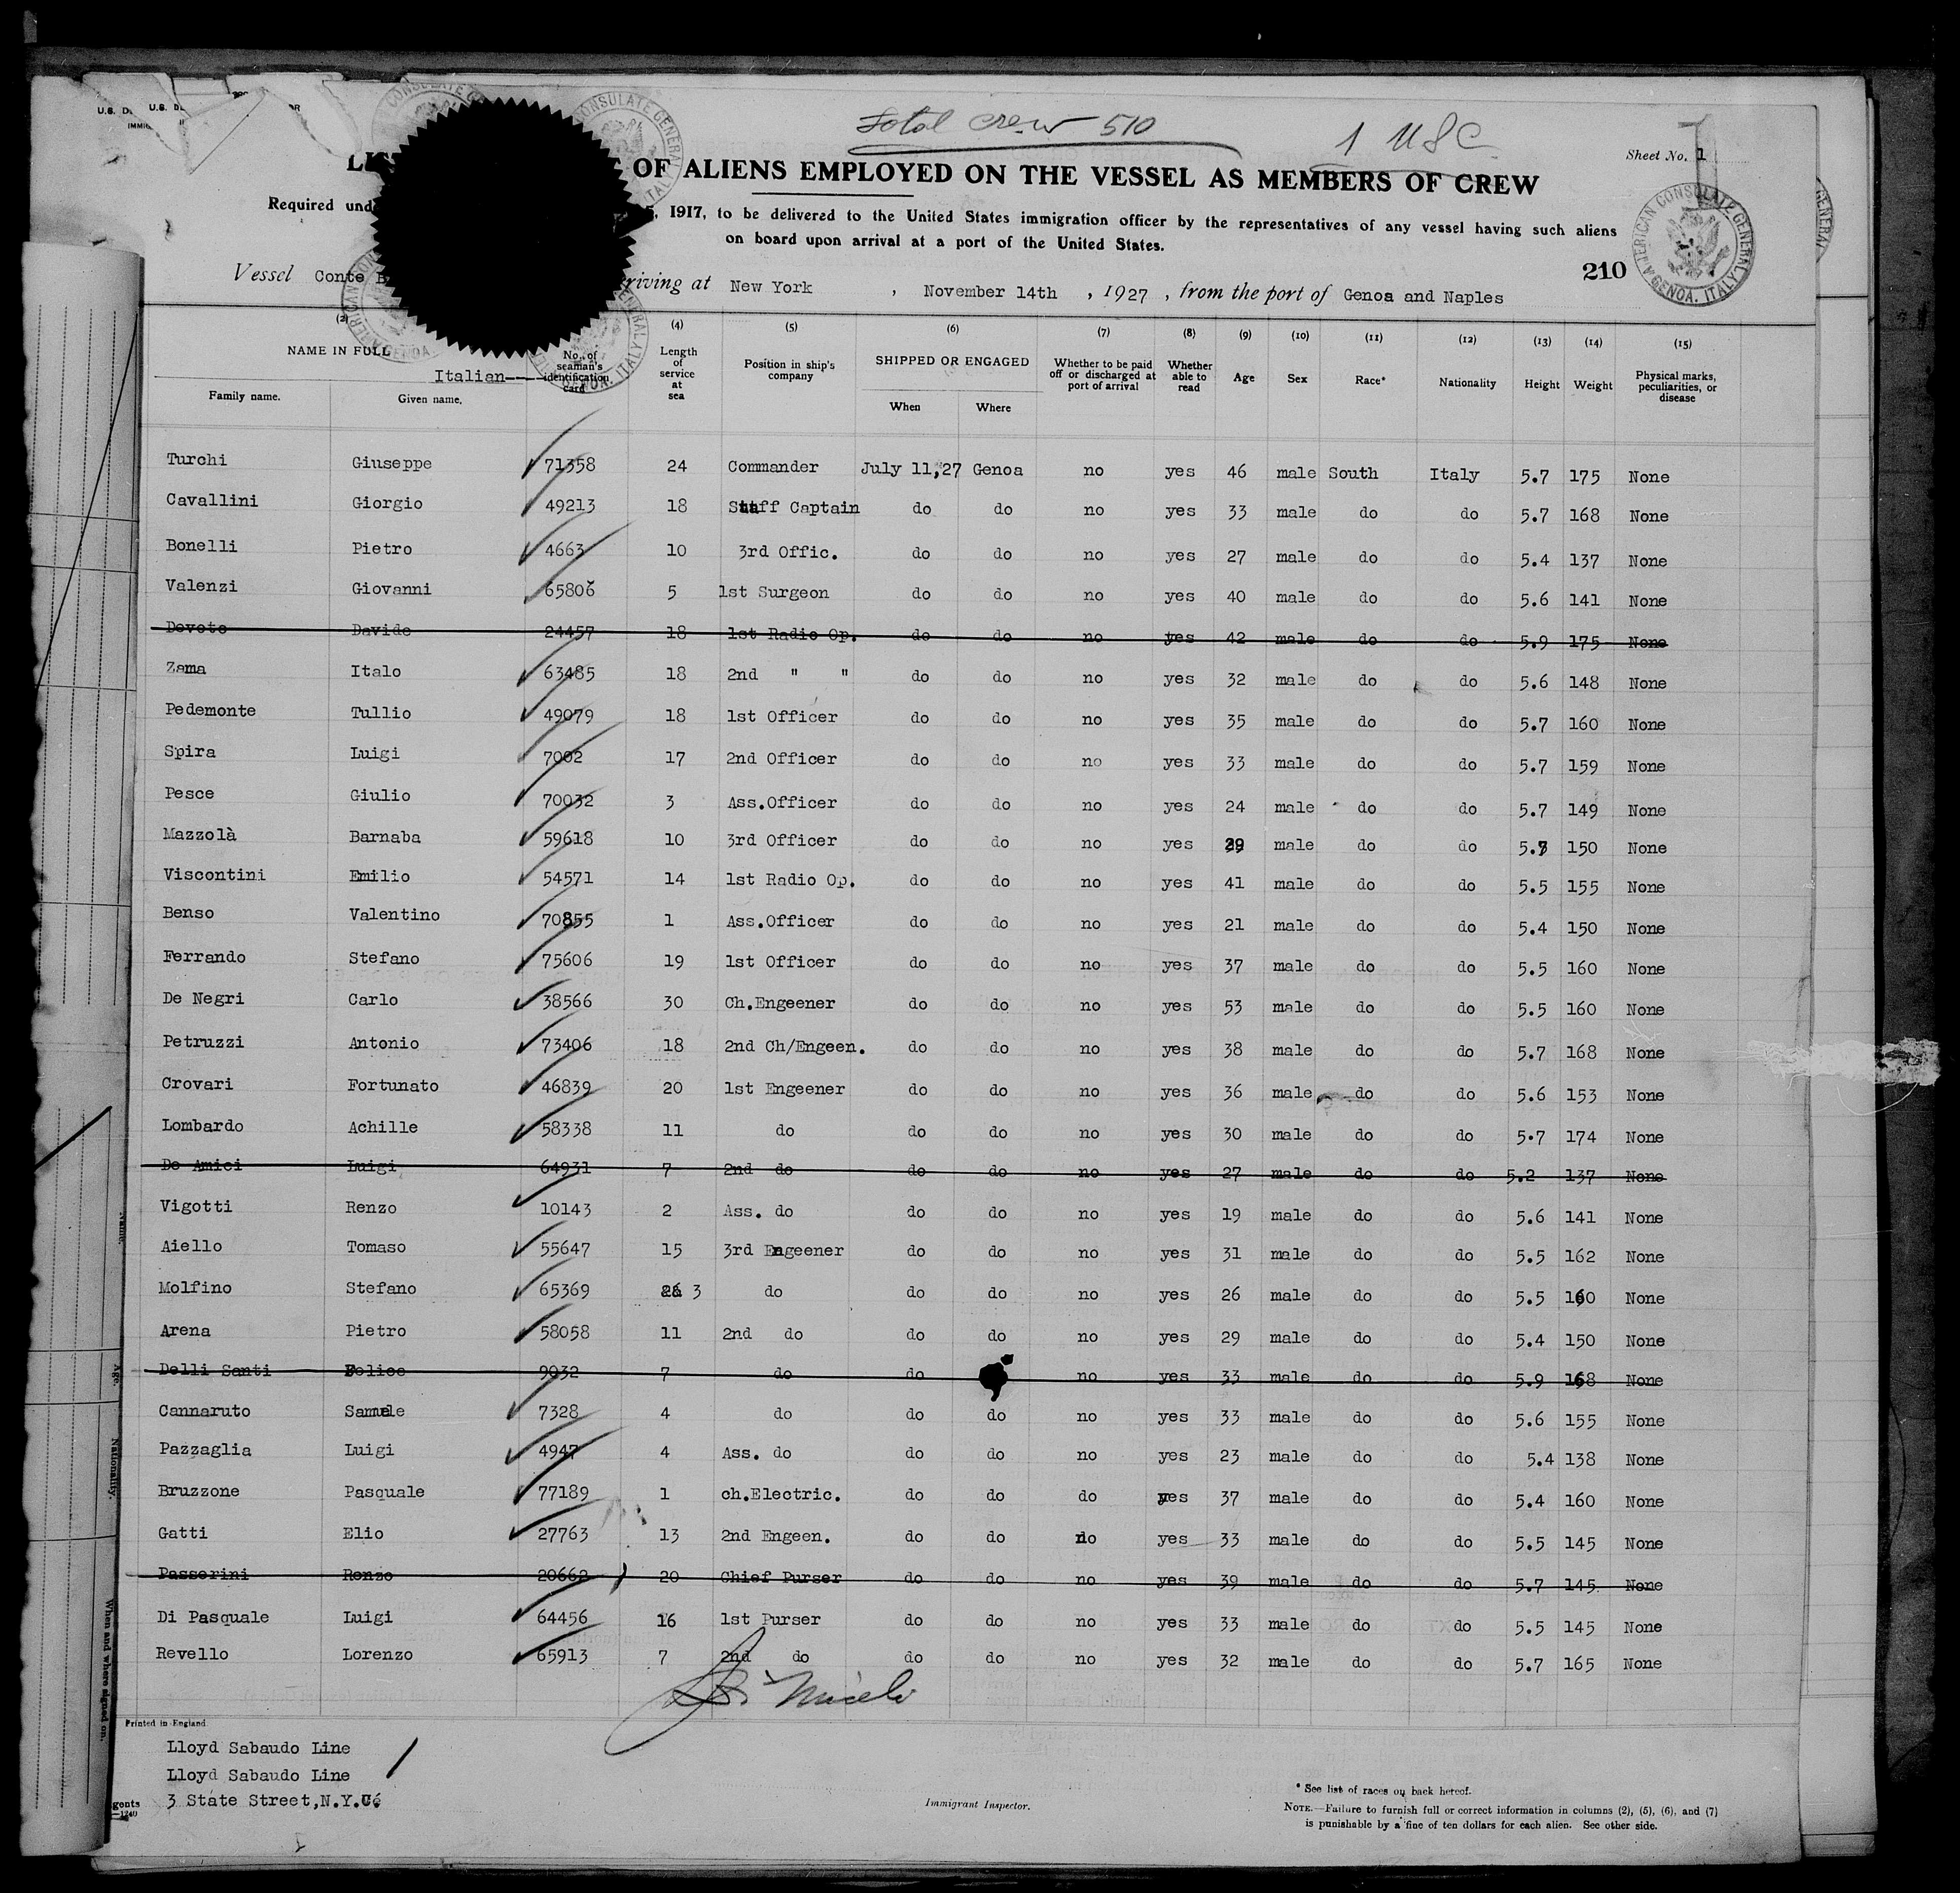 Total Crew 510
1 USC
Sheet No. 1
OF ALIENS EMPLOYED ON THE VESSEL AS MEMBERS OF CREW
Required 5, 1917, to be delivered to the United States immigration officer by the representatives of any vessel having such aliens
on board upon arrival at a port of the United States.
210
AMERICAN CONSULATE GENERAL GENOA, ITALY
Vessel Conte riving at New York , November 14th , 1927 , from the port of Genoa and Naples
(2) (4) (5) (6) (7) (8) (9) (10) (11) (12) (13) (14) (15)
NAME IN FULL No. of seaman's identification card Length of service at sea Position in ship's company SHIPPED OR ENGAGED Whether to be paid off or discharged at port of arrival Whether able to read Age Sex Race* Nationality Height Weight Physical marks, peculiarities, or disease
Italian
Family name. Given name. When Where
Turchi Giuseppe 71358 24 Commander July 11,27 Genoa no yes 46 male South Italy 5.7 175 None
Cavallini Giorgio 49213 18 Staff Captain do do no yes 33 male do do 5.7 168 None
Bonelli Pietro 4663 10 3rd Offic. do do no yes 27 male do do 5.4 137 None
Valenzi Giovanni 65806 5 1st Surgeon do do no yes 40 male do do 5.6 141 None
Devoto Davide 24457 18 1st Radio Op. do do no yes 42 male do do 5.9 175 None
Zama Italo 63485 18 2nd " " do do no yes 32 male do do 5.6 148 None
Pedemonte Tullio 49079 18 1st Officer do do no yes 35 male do do 5.7 160 None
Spira Luigi 7002 17 2nd Officer do do no yes 33 male do do 5.7 159 None
Pesce Giulio 70032 3 Ass.Officer do do no yes 24 male do do 5.7 149 None
Mazzolà Barnaba 59618 10 3rd Officer do do no yes male do do 150 None
Viscontini Emilio 54571 14 1st Radio Op. do do no yes 41 male do do 5.5 155 None
Benso Valentino 70855 1 Ass.Officer do do no yes 21 male do do 5.4 150 None
Ferrando Stefano 75606 19 1st Officer do do no yes 37 male do do 5.5 160 None
De Negri Carlo 38566 30 Ch.Engeener do do no yes 53 male do do 5.5 160 None
Petruzzi Antonio 73406 18 2nd Ch/Engeen. do do no yes 38 male do do 5.7 168 None
Crovari Fortunato 46839 20 1st Engeener do do no yes 36 male do do 5.6 153 None
Lombardo Achille 58338 11 do do do no yes 30 male do do 5.7 174 None
De Amici Luigi 64931 7 2nd do do do no yes 27 male do do 5.2 137 None
Vigotti Renzo 10143 2 Ass. do do do no yes 19 male do do 5.6 141 None
Aiello Tomaso 55647 15 3rd Engeener do do no yes 31 male do do 5.5 162 None
Molfino Stefano 65369 3 do do do no yes 26 male do do 5.5 160 None
Arena Pietro 58058 11 2nd do do do no yes 29 male do do 5.4 150 None
Delli Santi Felice 9032 7 do do no yes 33 male do do 5.9 168 None
Cannaruto Samuele 7328 4 do do do no yes 33 male do do 5.6 155 None
Pazzaglia Luigi 4947 4 Ass. do do do no yes 23 male do do 5.4 138 None
Bruzzone Pasquale 77189 1 ch.Electric. do do do yes 37 male do do 5.4 160 None
Gatti Elio 27763 13 2nd Engeen. do do no yes 33 male do do 5.5 145 None
Passerini Renzo 20662 20 Chief Purser do do no yes 39 male do do 5.7 145 None
Di Pasquale Luigi 64456 16 1st Purser do do no yes 33 male do do 5.5 145 None
Revello Lorenzo 65913 7 2nd do do do no yes 32 male do do 5.7 165 None
Printed in England.
Lloyd Sabaudo Line
Lloyd Sabaudo Line
3 State Street,N.Y.
Immigrant Inspector.
* See list of races on back hereof.
NOTE.—Failure to furnish full or correct information in columns (2), (5), (6), and (7)
is punishable by a fine of ten dollars for each alien. See other side.
Name.
Age.
Nationality.
When and where signed on.